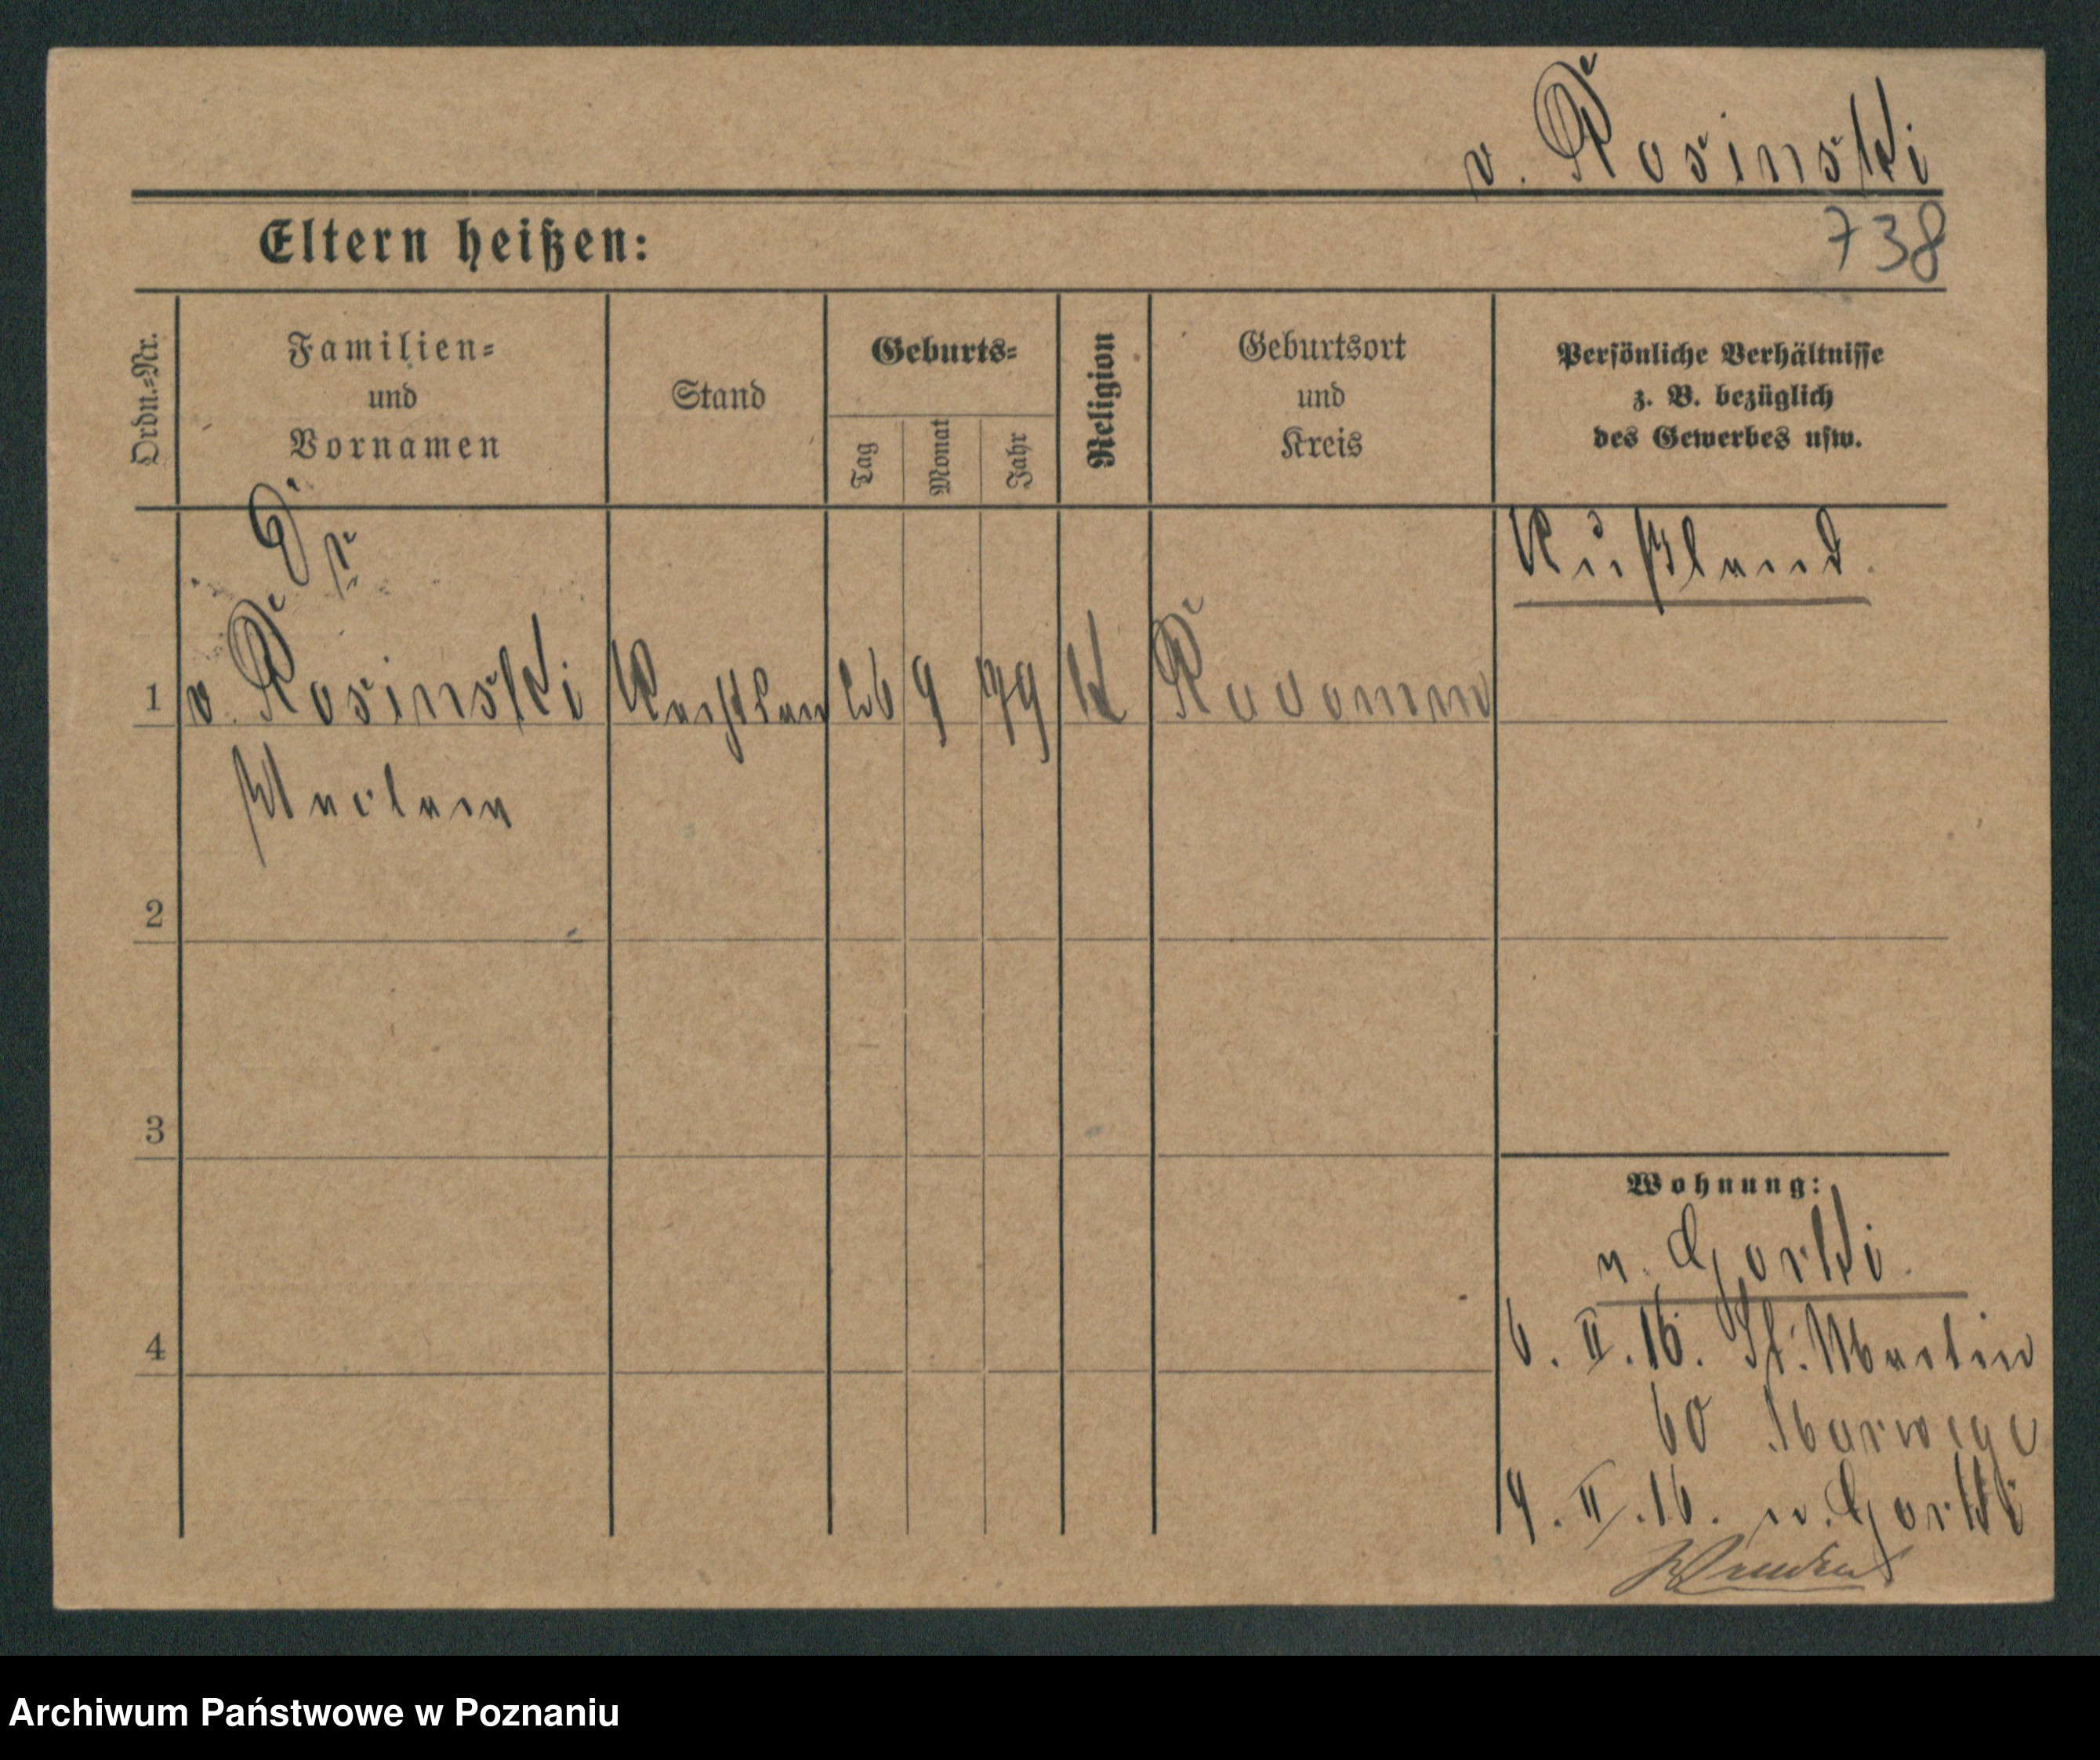 v. Rosinski
Eltern heißen:
738
Ordn.-Nr.
Familien-
und
Vornamen
Stand
Geburts-
Tag
Monat
Jahr
Religion
Geburtsort
und
Kreis
Persönliche Verhältnisse
z. B. bezüglich
des Gewerbes usw.
Dr
Rußland.
1 v. Rosinski 9 79 K Radomin
2
3
Wohnung:
v. Gorski.
4
6. II. 16. St. Martin
60
9. II. 16. v. Gorski
Archiwum Państwowe w Poznaniu